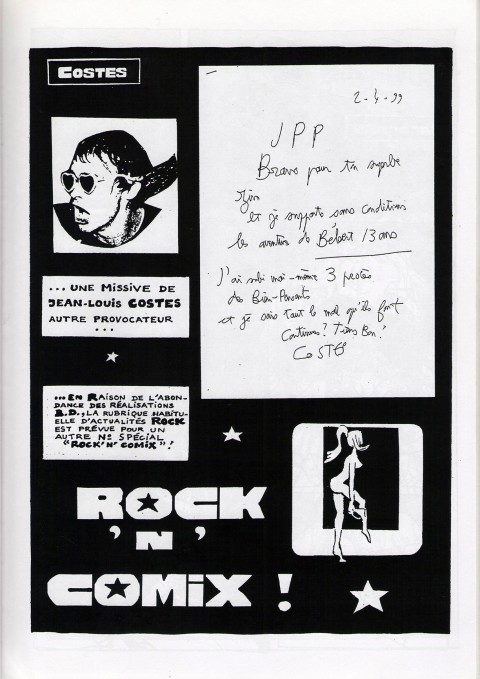 COSTES
2-4-99
JPP
Bravo pour ton superbe
zine
et je supporte sans conditions
les aventures de Bébert 13 ans
J'ai subi moi-même 3 procès
des Bien-Pensants
et je sais tout le mal qu'ils font
Continues! Tiens Bon!
COSTES
...UNE MISSIVE DE
JEAN-LOUIS COSTES
AUTRE PROVOCATEUR
...
...EN RAISON DE L'ABON-
DANCE DES RÉALISATIONS
B.D., LA RUBRIQUE HABITU-
ELLE D'ACTUALITÉS ROCK
EST PRÉVUE POUR UN
AUTRE N° SPÉCIAL
"ROCK'N'COMIX"!
ROCK
'N'
COMIX !